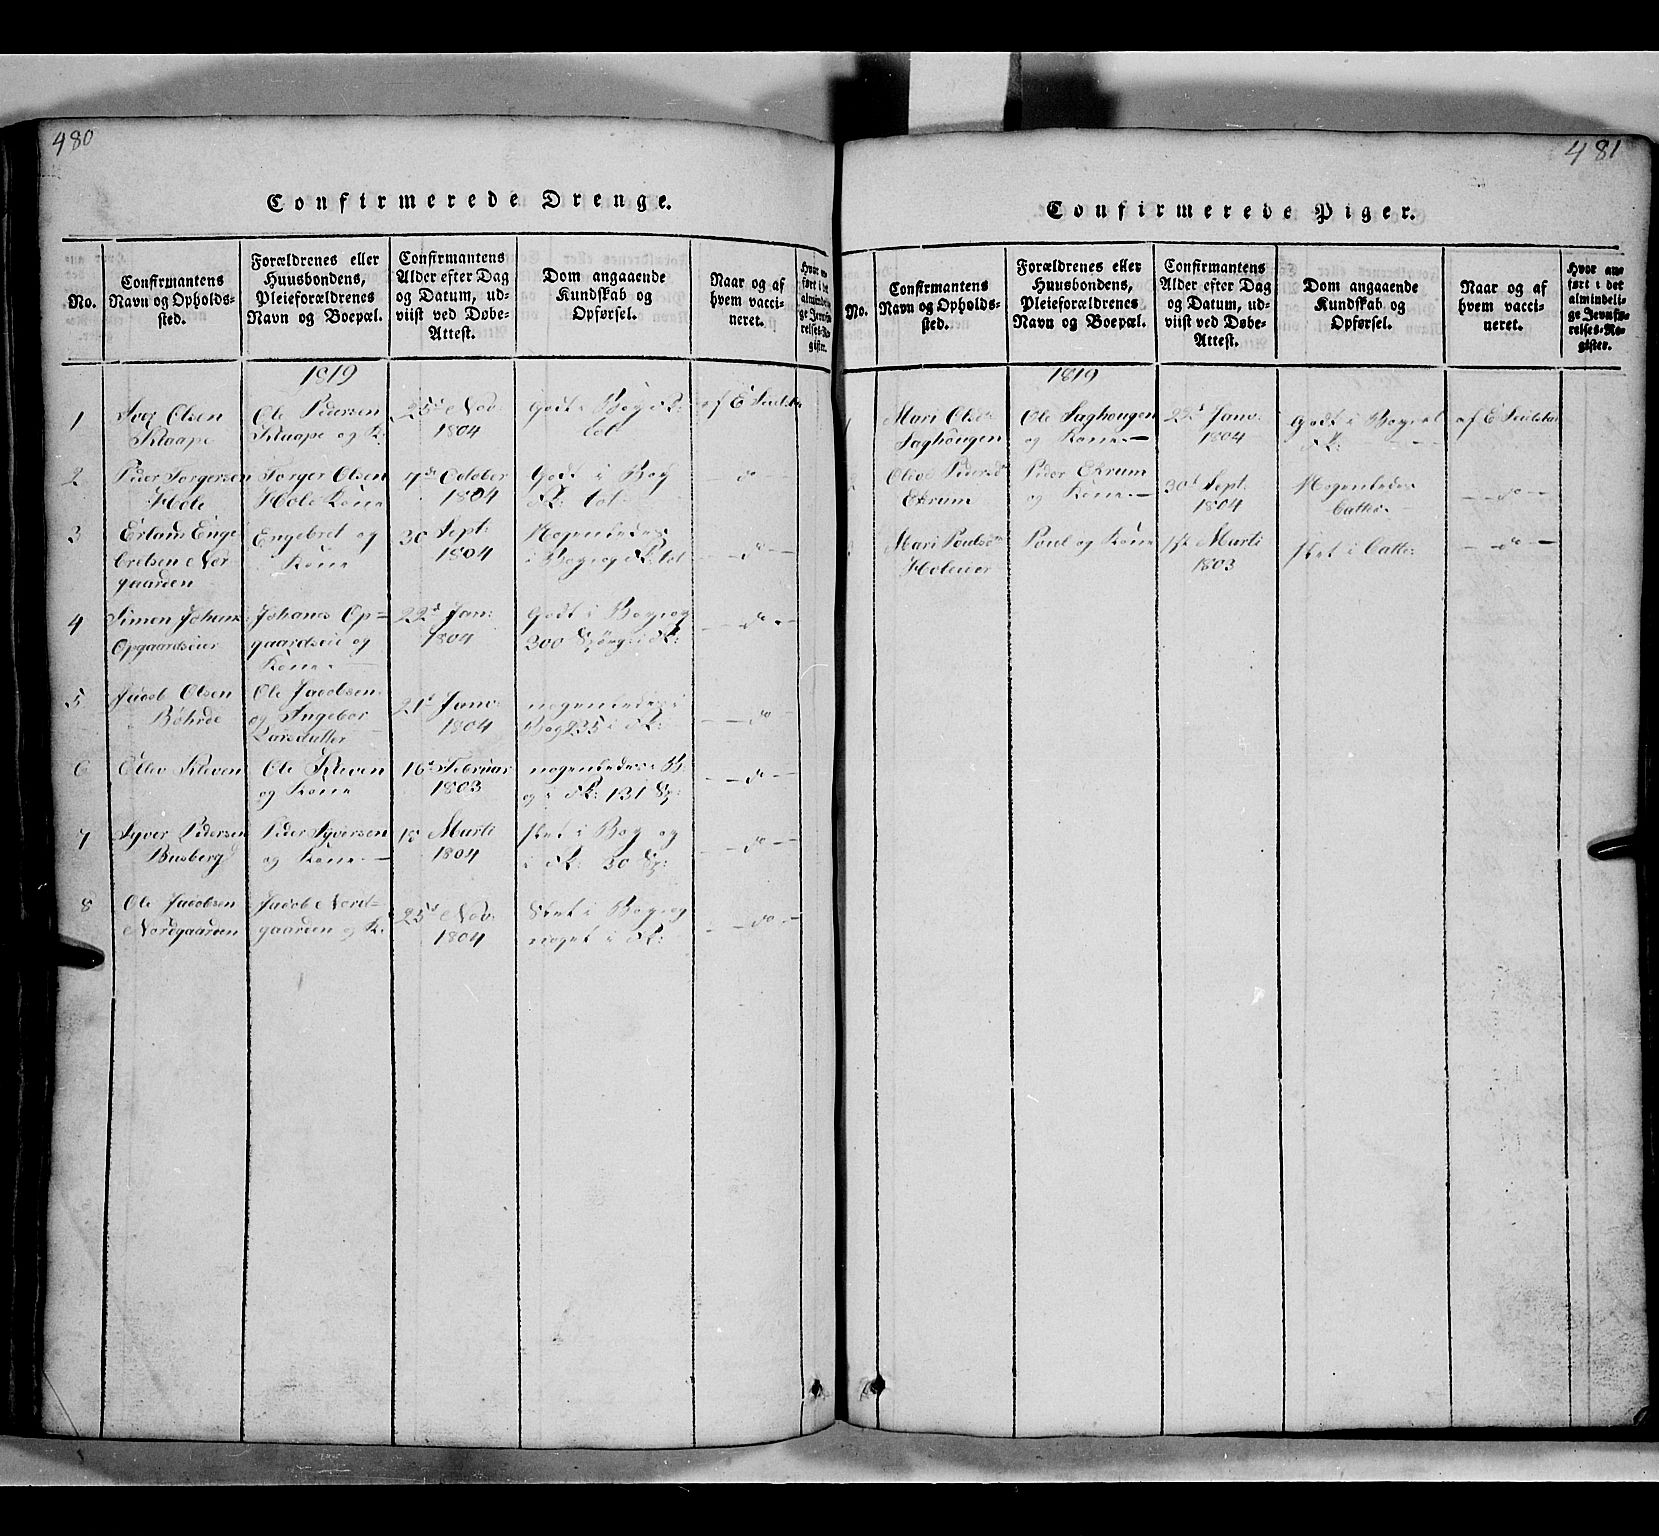 480
Confirmerede Drenge.
No.
Confirmantens
Navn og Opholds-
sted.
Forældrenes eller
Huusbondens,
Pleieforældrenes
Navn og Boepæl.
Confirmantens
Alder efter Dag
og Datum, ud-
viist ved Døbe-
Attest.
Dom angaaende
Kundskab og
Opførsel.
Naar og af
hvem vacci-
neret.
Hvor an-
ført i det
almindeli-
ge Jevnfø-
relses-Re-
gister.
1819
1
Olsen
Klaape
Ole Pedersen
Klaape og K:
25d Nov:
1804
Godt i Bog i F:
tol
af E
2
Peder Torgersen
Hole
Torger Olsen
Hole Kone
7de October
1804
Godt i Bog
F: tol
do
3
Erland Enge
bretsen Nor
gaarden
Engebret og
Kone
30 Sept:
1804
Nogenledes
i Bog og F: tol
do
4
Simen Johans
Opgaardseier
Johanes Op-
gaardseie og
Kone
22d Jan:
1804
Godt i Bog og
200 Spørg: i F:
do
5
Jacob Olsen
Bøhrde
Ole Jacobsen
og Ingebor
Larsdatter
21d Janv:
1804
nogenledes i
Bog 235 i F:
do
6
Ellev Kleven
Ole Kleven
og Kone
16d Februar
1803
nogenledes i B:
og i F: 131 Sp:
do
7
Syver Pedersen
Busberg
Peder Syversen
og Kone
18 Marti
1804
slet i Bog og
i F: 30 Sp:
do
8
Ole Jacobsen
Nordgaarden
Jacob Nord-
gaarden og K:
25d Nov:
1804
Slet i Bog og
noget i F:
do
481
Confirmerede Piger.
No.
Confirmantens
Navn og Opholds-
sted.
Forældrenes eller
Huusbondens,
Pleieforældrenes
Navn og Boepæl.
Confirmantens
Alder efter Dag
og Datum, ud-
viist ved Døbe-
Attest.
Dom angaaende
Kundskab og
Opførsel.
Naar og af
hvem vacci-
neret.
Hvor an-
ført i det
almindeli-
ge Jevnfø-
relses-Re-
gister.
1819
1
Mari Olsd
Saghougen
Ole Saghougen
og Kone
22d Janv:
1804
Godt i Bog
F:
af E
2
Olive Pedersd
Ekrum
Peder Ekrum
og Kone
30d Sept:
1804
Nogenledes
Catte:
do
3
Mari Poulsd
Holeeier
Poul og Kone
Marti
1803
slet i Catte:
do